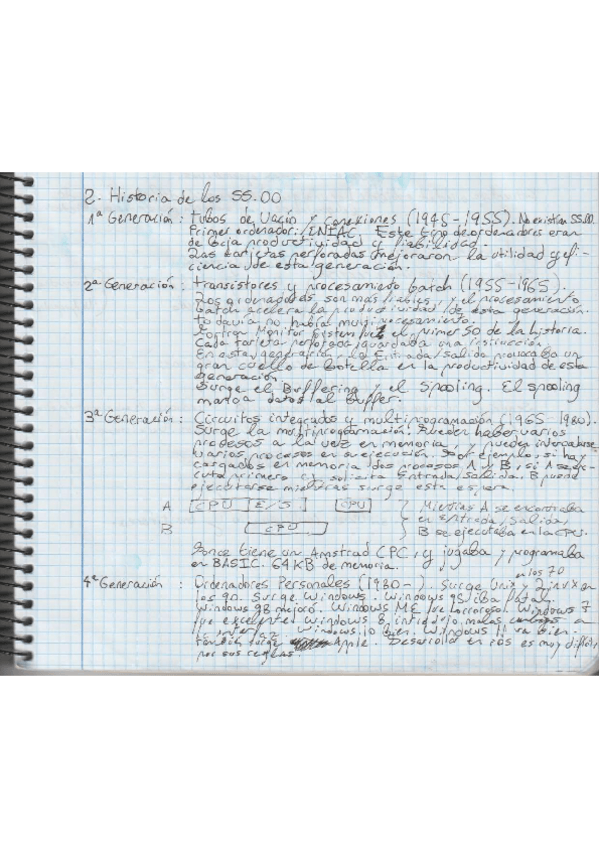 2. Historia de los SS.OO
1ª Generación: tubos de Vacío y conexiones (1945-1955). No existían SS.OO.
Primer ordenador: ENIAC. Este tipo de ordenadores eran
de baja productividad y fiabilidad.
Las tarjetas perforadas mejoraron la utilidad y efi-
ciencia de esta generación.
2ª Generación: transistores y procesamiento batch (1955-1965).
Los ordenadores son más fiables, y el procesamiento
batch acelera la productividad de esta generación.
todavía no había multiprocesamiento.
Fortran Monitor System fue el primer SO de la historia.
Cada tarjeta perforada guardaba una instrucción
En esta generación la Entrada/Salida provocaba un
gran cuello de botella en la productividad de esta
generación.
Surge el Buffering y el Spooling. El spooling
manda datos al buffer.
3ª Generación: Circuitos integrados y multiprogramación (1965-1980).
Surge la multiprogramación. Pueden haber varios
procesos a la vez en memoria, y pueden intercalarse
varios procesos en su ejecución. Por ejemplo, si hay
cargados en memoria dos procesos A y B, si A se eje-
cuta primero y solicita Entrada/Salida, B puede
ejecutarse mientras surge esta espera.
A CPU E/S CPU Mientras A se encontraba
en Entrada/Salida,
B CPU B se ejecutaba en la CPU.
Jonce tiene un Amstrad CPC, y jugaba y programaba
en BASIC. 64KB de memoria.
en los 70
4ª Generación: Ordenadores Personales (1980- ). Surge Unix y Linux en
los 90. Surge Windows. Windows 95 iba fatal.
Windows 98 mejoró. Windows ME fue horroroso. Windows 7
fue excelente. Windows 8 introdujo malos cambios a
la interfaz. Windows 10 bien. Windows 11 va bien.
también surge Apple. Desarrollar en iOS es muy difícil,
por sus reglas